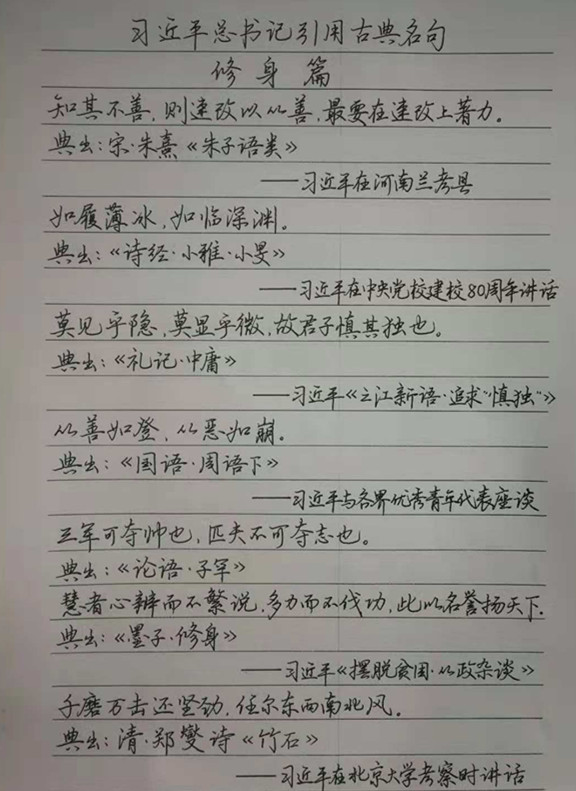 习近平总书记引用古典名句
修身篇
知其不善，则速改以从善，最要在速改上著力。
典出：宋·朱熹《朱子语类》
——习近平在河南兰考县
如履薄冰，如临深渊。
典出：《诗经·小雅·小旻》
——习近平在中央党校建校80周年讲话
莫见乎隐，莫显乎微，故君子慎其独也。
典出：《礼记·中庸》
——习近平《之江新语·追求“慎独”》
从善如登，从恶如崩。
典出：《国语·周语下》
——习近平与各界优秀青年代表座谈
三军可夺帅也，匹夫不可夺志也。
典出：《论语·子罕》
慧者心辨而不繁说，多力而不伐功，此以名誉扬天下.
典出：《墨子·修身》
——习近平《摆脱贫困·从政杂谈》
千磨万击还坚劲，任尔东西南北风。
典出：清·郑燮诗《竹石》
——习近平在北京大学考察时讲话